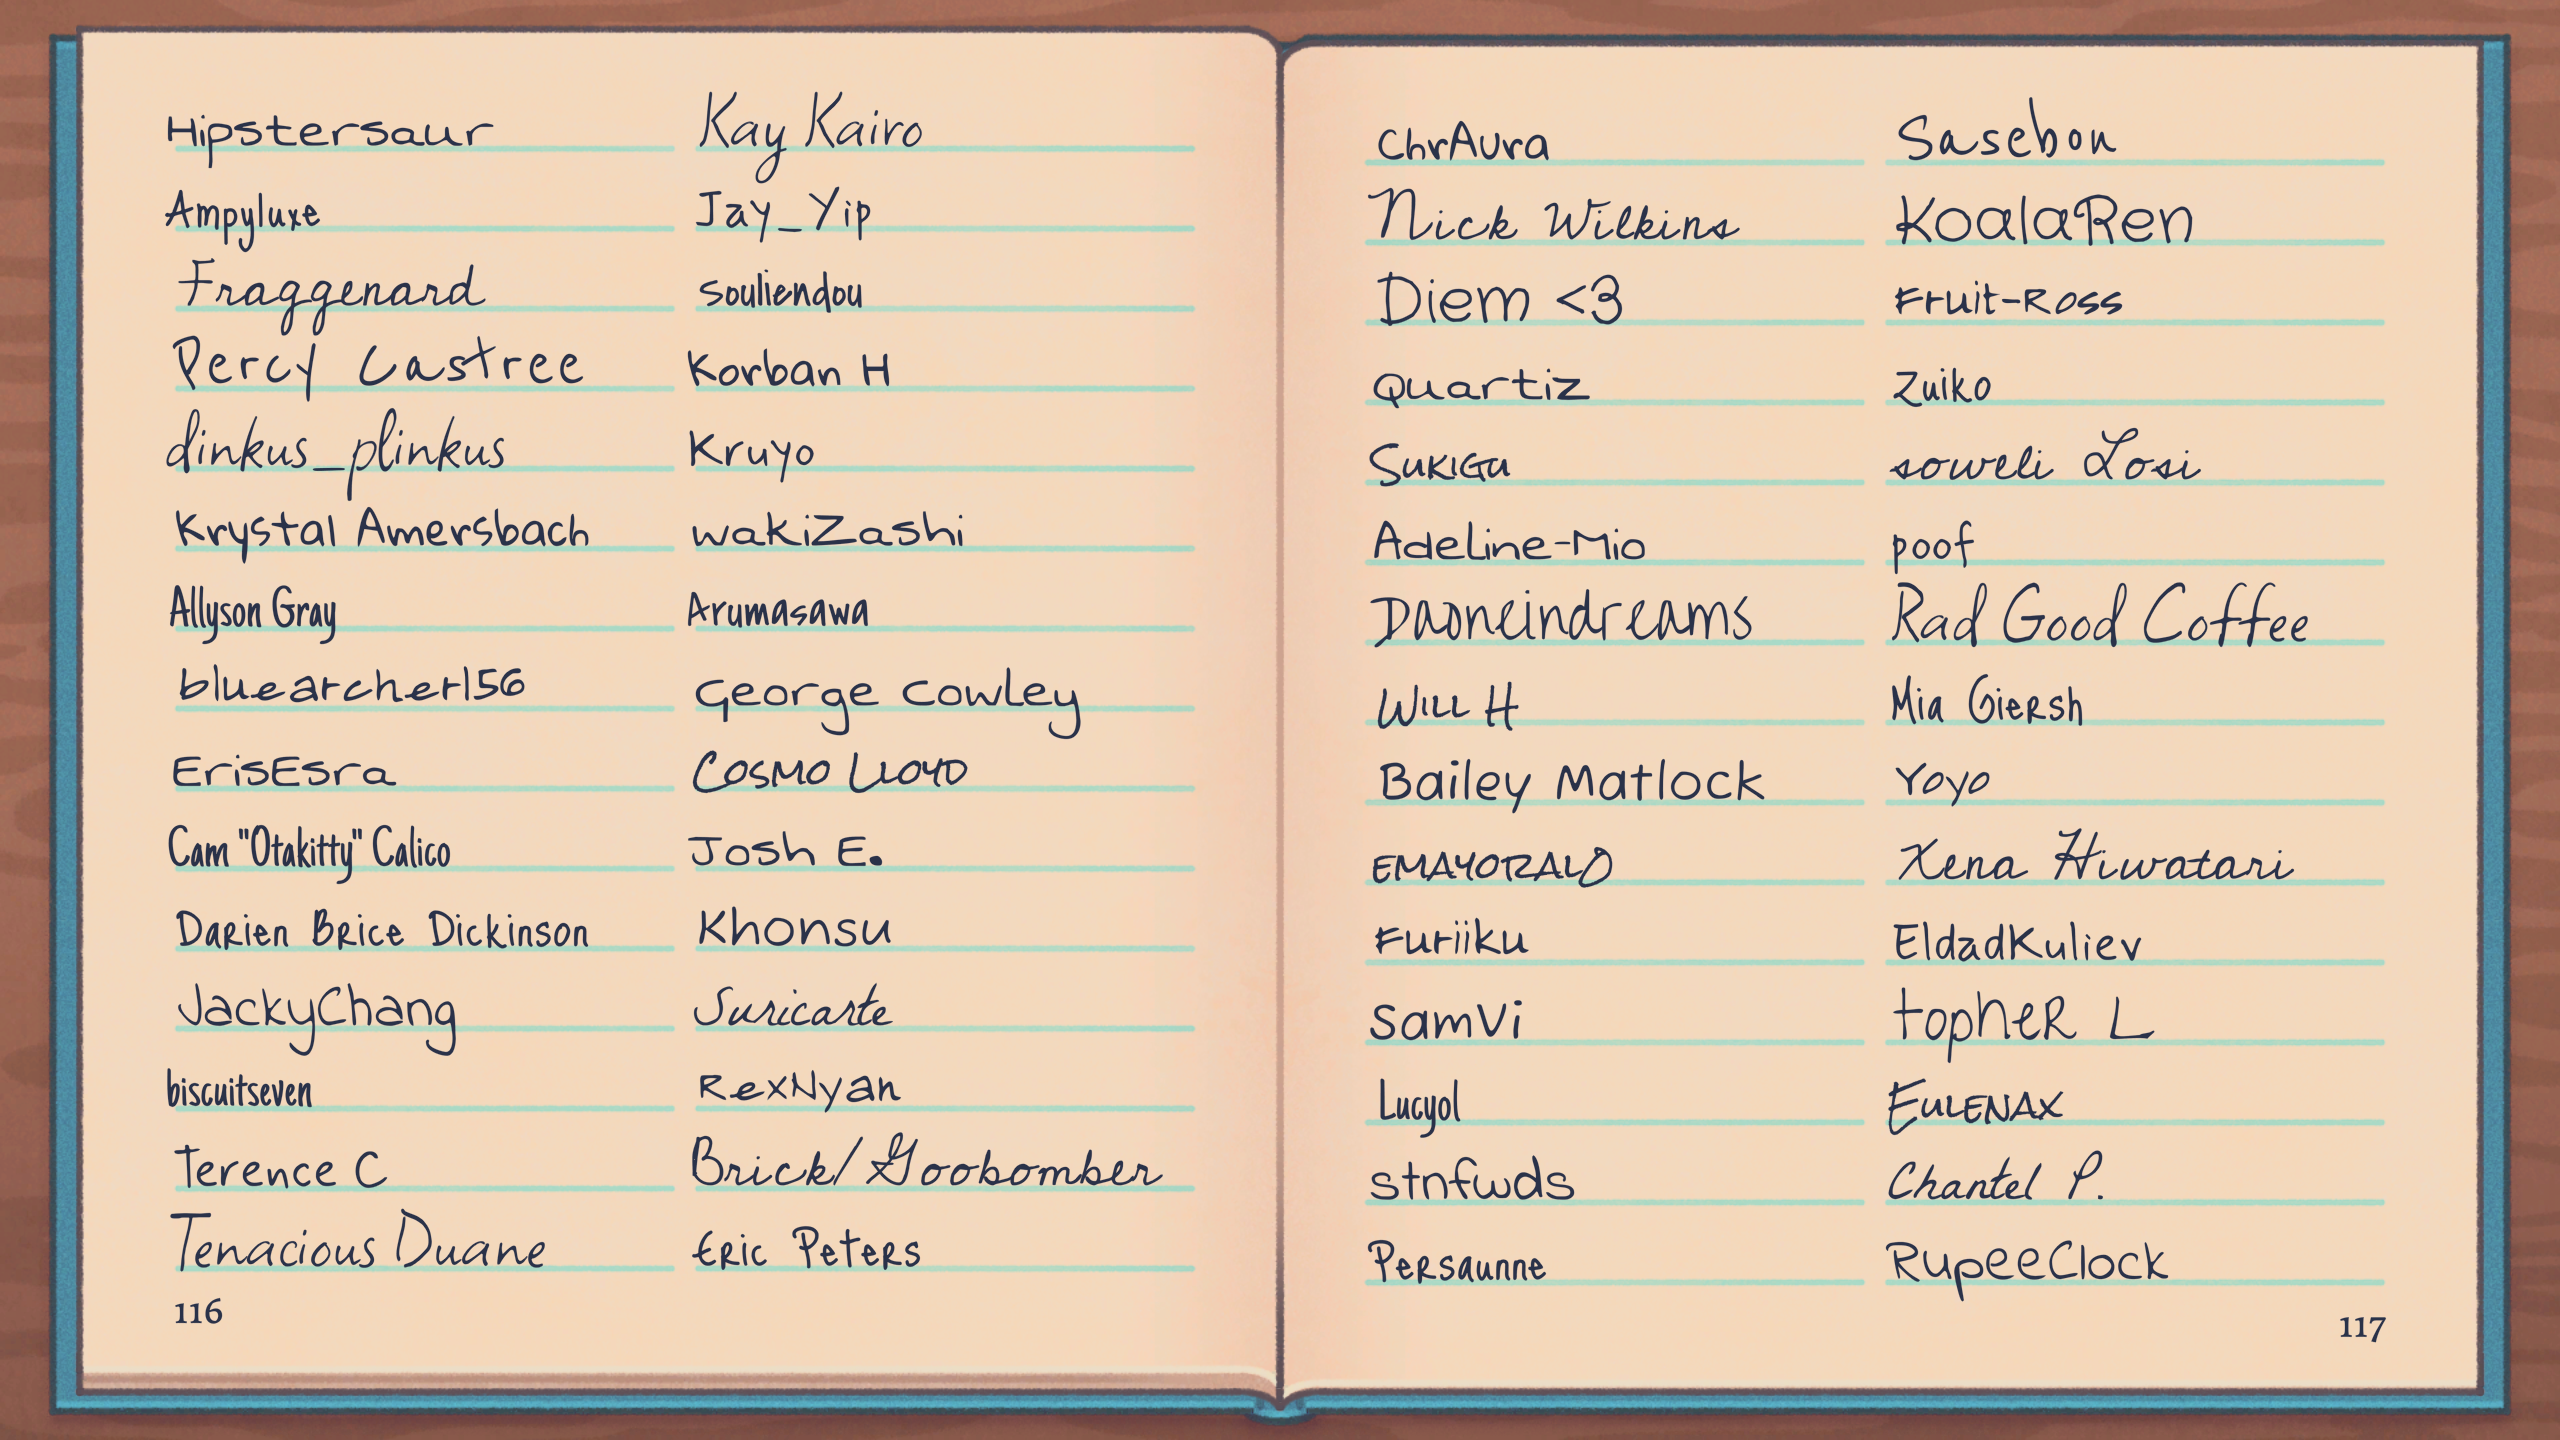 Hipstersaur
Ampyluxe
Fraggenard
Percy Castree
dinkus_plinkus
Krystal Amersbach
Allyson Gray
bluearcher156
ErisEsra
Cam "Otakitty" Calico
Darien Brice Dickinson
JackyChang
biscuitseven
Terence C
Tenacious Duane
116
Kay Kairo
Jay_Yip
souliendou
Korban H
Kruyo
wakiZashi
Arumasawa
George Cowley
Cosmo Lloyd
Josh E.
Khonsu
Suricarte
RexNyan
Brick/Goobomber
Eric Peters
ChrAura
Nick Wilkins
Diem <3
Quartiz
Sukigu
Adeline-Mio
Daoneindreams
Will H
Bailey Matlock
EMAYORALO
Furiiku
samVi
Lucyol
stnfwds
Persaunne
Sasebon
KoalaRen
Fruit-Ross
Zuiko
soweli Losi
poof
Rad Good Coffee
Mia Giersh
Yoyo
Xena Hiwatari
EldadKuliev
topher L
Eulenax
Chantel P.
RupeeClock
117